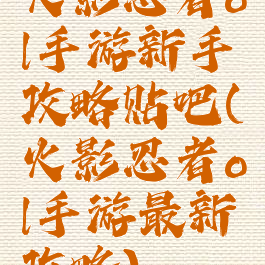 火影忍者。
|手游新手
攻略贴吧(
火影忍者。
|手游最新
攻略)